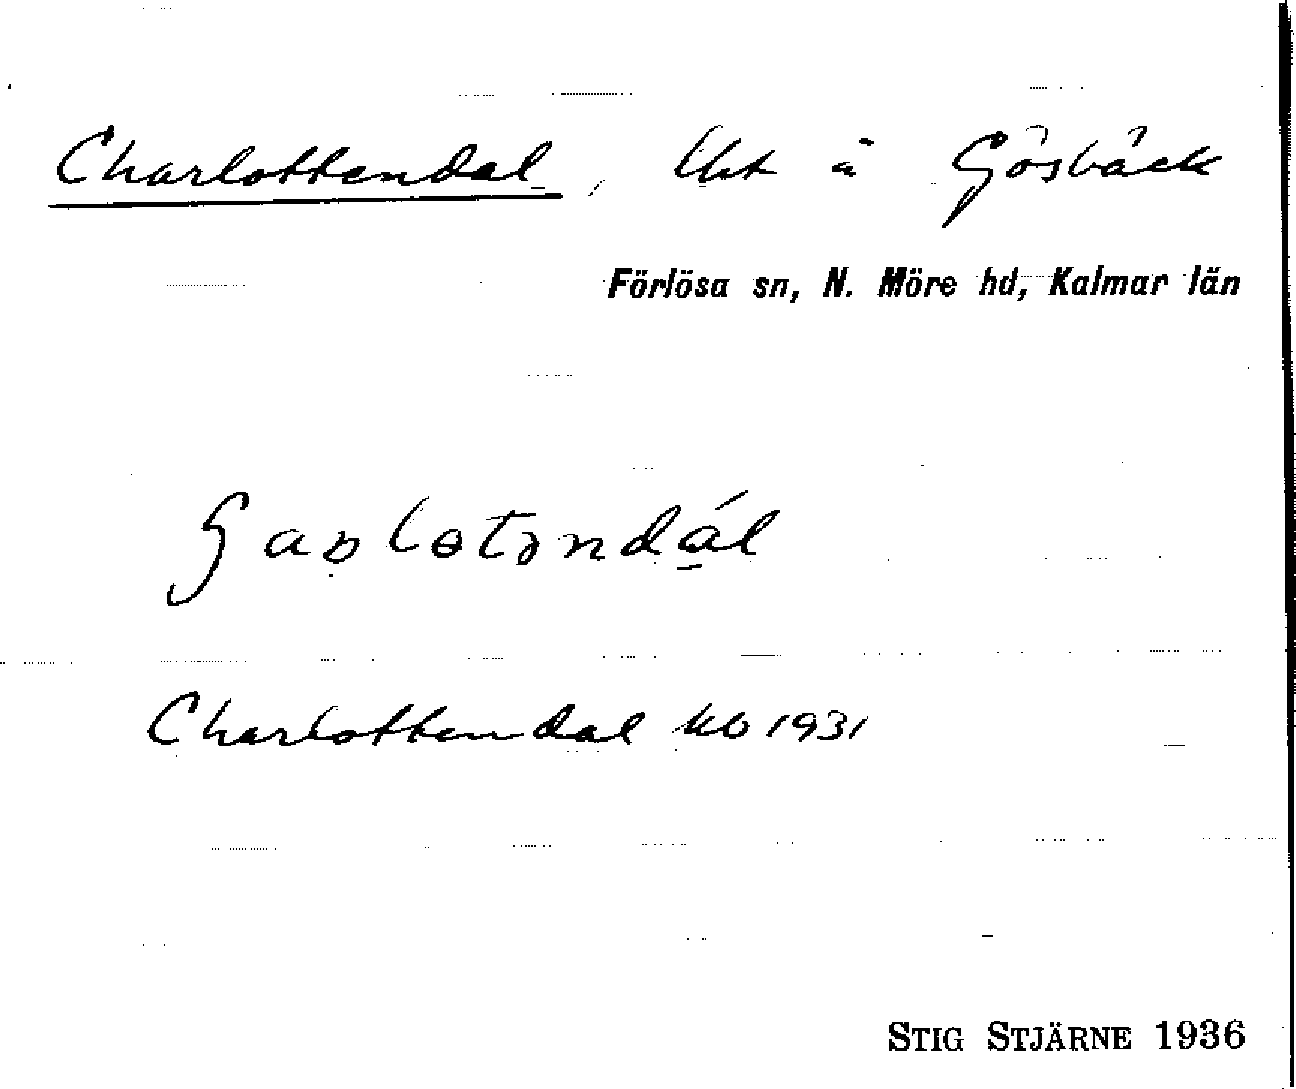 Charlottendal, lht å Gösbäck
Förlösa sn, N. Möre hd, Kalmar län
Charlottendal kb 1931
STIG STJÄRNE 1936